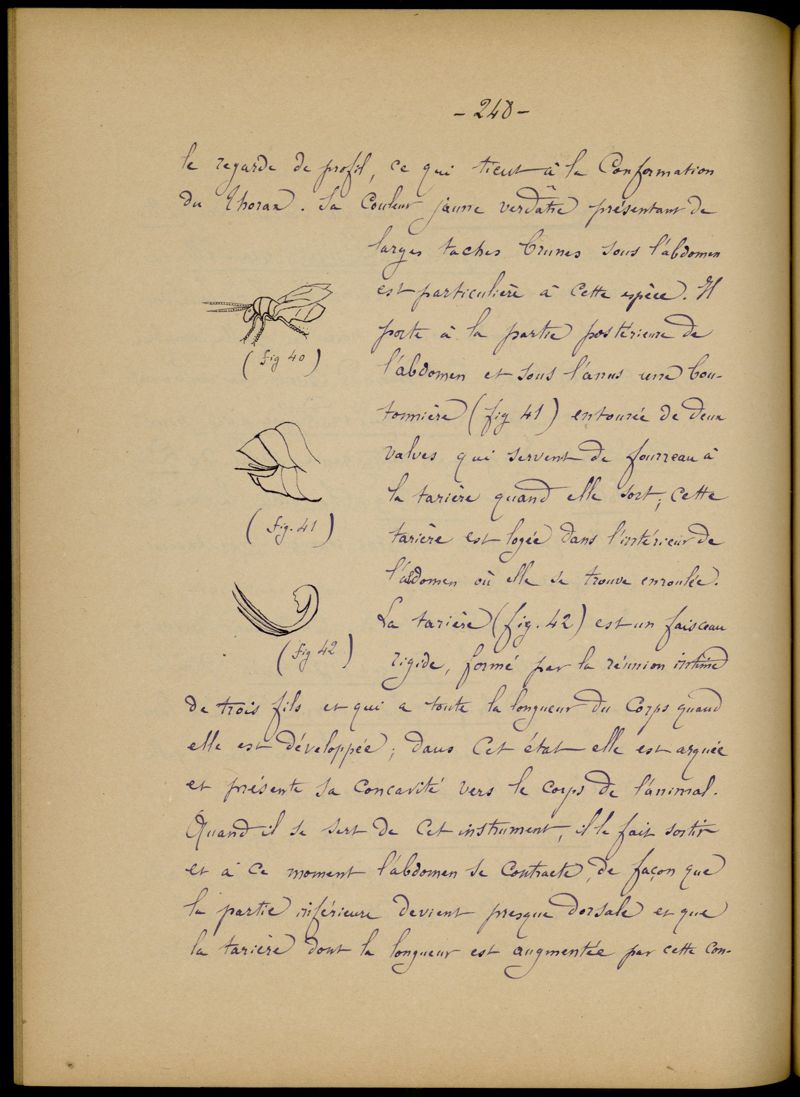 - 248 -
le regarde de profil, ce qui tient à la Conformation
du Thorax. Sa Couleur jaune verdâtre présentant de
larges taches brunes sous l'abdomen
est particulière à cette espèce. Il
porte à la partie postérieure de
l'abdomen et sous l'anus une bou-
tonnière (fig 41) entourée de deux
valves qui servent de fourreau à
la tarière quand elle sort; cette
tarière est logée dans l'intérieur de
l'abdomen où elle se trouve enroulée.
La tarière (fig. 42) est un faisceau
rigide, formé par la réunion intime
(fig 40)
(fig. 41)
(fig 42)
de trois fils et qui a toute la longueur du Corps quand
elle est développée; dans cet état elle est arquée
et présente sa concavité vers le corps de l'animal.
Quand il se sert de cet instrument, il le fait sortir
et à ce moment l'abdomen se contracte, de façon que
la partie inférieure devient presque dorsale et que
la tarière dont la longueur est augmentée par cette con-